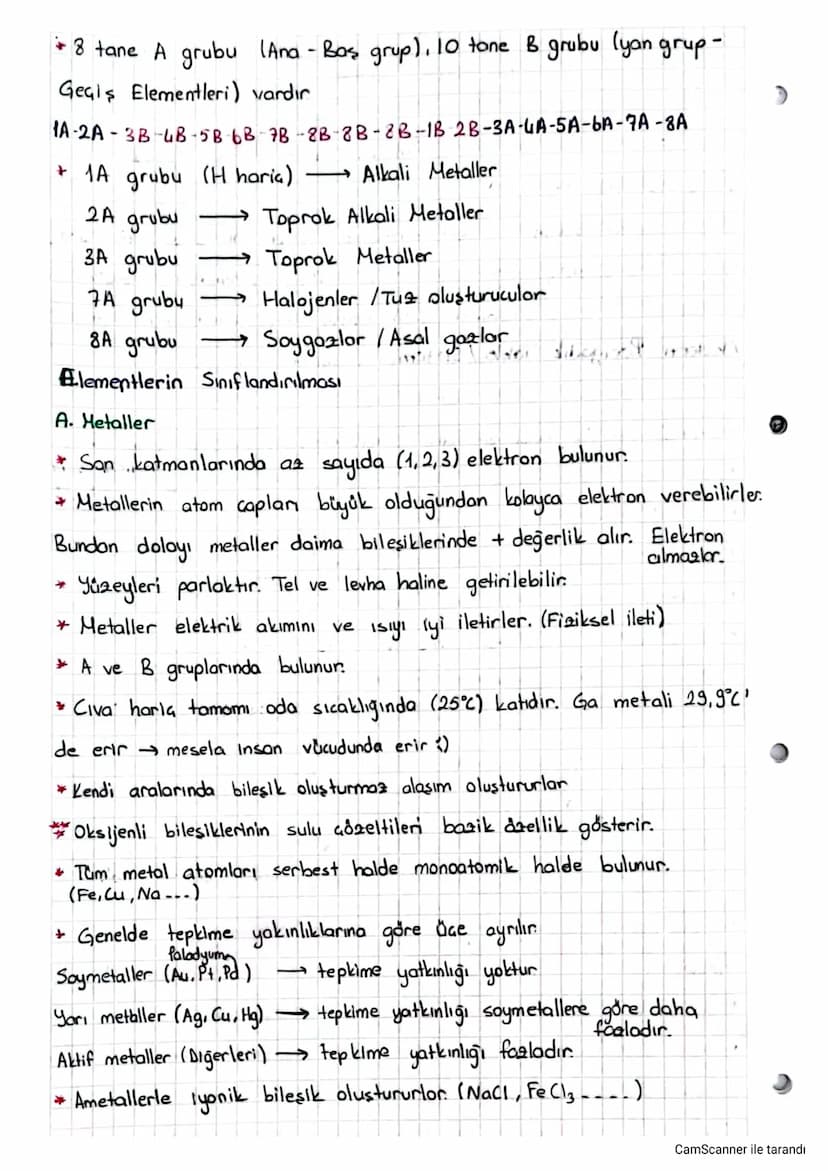 * 8 tane A grubu (Ana - Baş grup), 10 tane B grubu (yan grup -
Geçiş Elementleri) vardır
1A-2A - 3B-4B-5B-6B-7B-8B-8B-8B-1B 2B-3A-4A-5A-6A-7A-8A
+ 1A grubu (H hariç) → Alkali Metaller
2A grubu → Toprak Alkali Metaller
3A grubu → Toprak Metaller
7A grubu → Halojenler / Tuz oluşturucular
8A grubu → Soygazlar / Asal gazlar
Elementlerin Sınıflandırılması
A. Metaller
* Son katmanlarında az sayıda (1,2,3) elektron bulunur.
* Metallerin atom çapları büyük olduğundan kolayca elektron verebilirler.
Bundan dolayı metaller daima bileşiklerinde + değerlik alır. Elektron
almazlar.
* Yüzeyleri parlaktır. Tel ve levha haline getirilebilir.
* Metaller elektrik akımını ve ısıyı iyi iletirler. (Fiziksel ileti)
* A ve B gruplarında bulunur.
* Civa hariç tamamı oda sıcaklığında (25°C) katıdır. Ga metali 29,9°C'
de erir → mesela insan vücudunda erir :)
* Kendi aralarında bileşik oluşturmaz alaşım oluştururlar
** Oksijenli bileşiklerinin sulu çözeltileri bazik özellik gösterir.
* Tüm metal atomları serbest halde monoatomik halde bulunur.
(Fe, Cu, Na ---)
+ Genelde tepkime yakınlıklarına göre üçe ayrılır.
paladyum
Soymetaller (Au, Pt, Pd) → tepkime yatkınlığı yoktur
Yarı metaller (Ag, Cu, Hg) → tepkime yatkınlığı soymetallere göre daha
fazladır.
Aktif metaller (Diğerleri) → tepkime yatkınlığı fazladır.
* Ametallerle iyonik bileşik oluştururlar. (NaCl, FeCl3 ----)
CamScanner ile tarandı